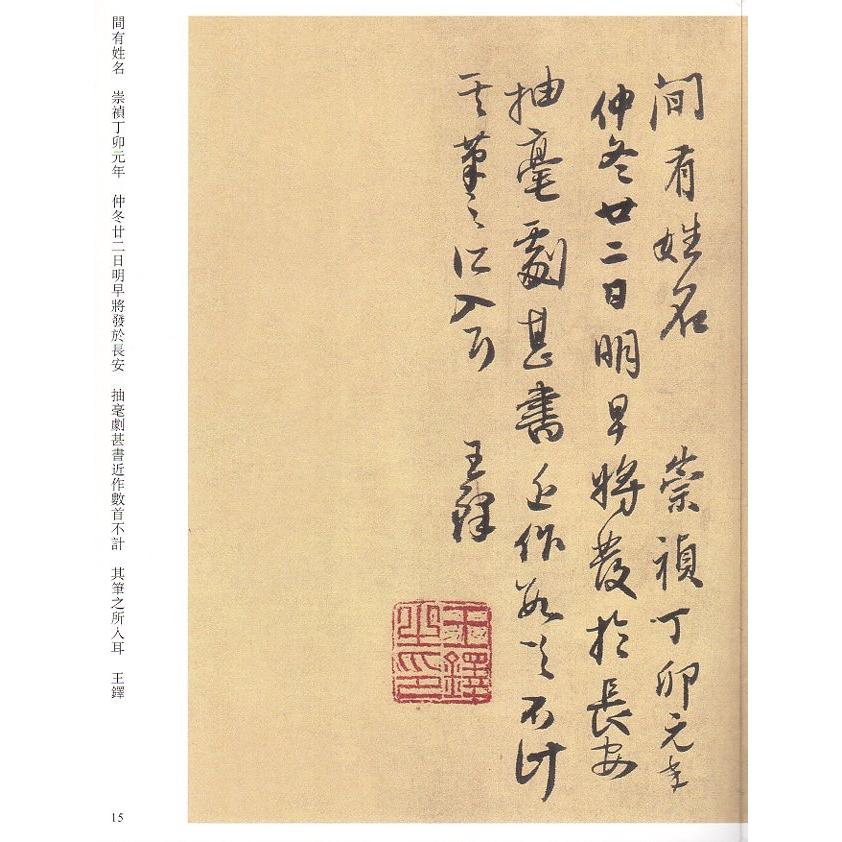 間有姓名 崇禎丁卯元年
仲冬廿二日明早將發於長安
抽毫劇甚書近作數首不計
其筆之所入耳 王鐸
王鐸之印
間有姓名 崇禎丁卯元年 仲冬廿二日明早將發於長安 抽毫劇甚書近作數首不計 其筆之所入耳 王鐸
15